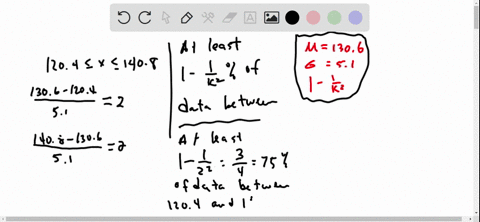 120.4 ≤ x ≤ 140.8
130.6 - 120.4
5.1
= 2
140.8 - 130.6
5.1
= 2
At least
1 - 1/K² % of
data between
At least
1 - 1/2² = 3/4 = 75%
of data between
120.4 and 1
M = 130.6
σ = 5.1
1 - 1/K²